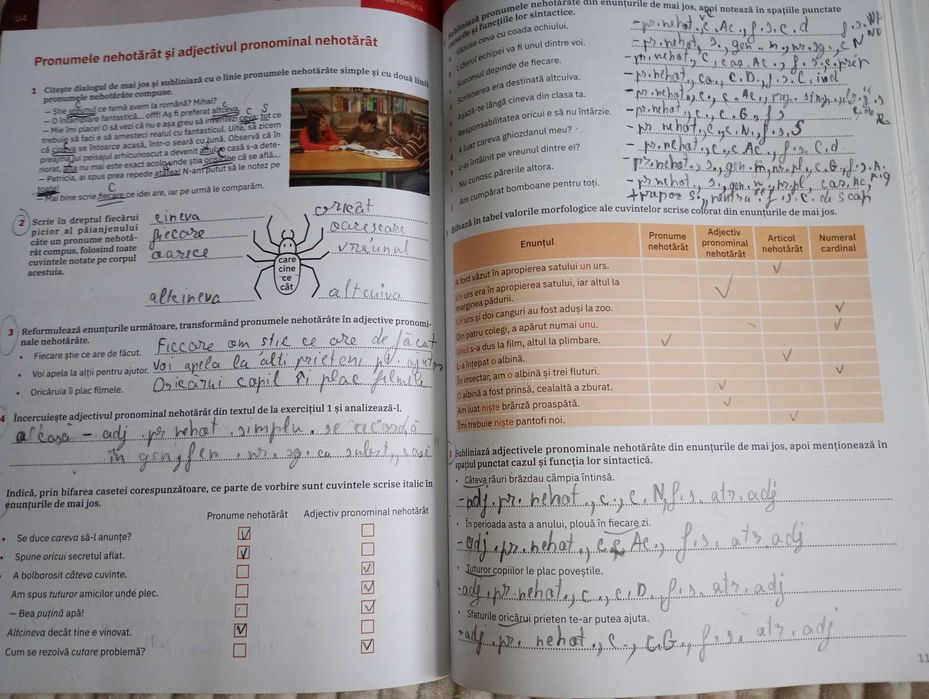 Pronumele nehotărât și adjectivul pronominal nehotărât
1 Citește dialogul de mai jos și subliniază cu o linie pronumele nehotărâte simple și cu două linii
pronumele nehotărâte compuse.
— Știe vreunul ce temă avem la română? Mihai?
— O însemnare fantastică... offf! Aș fi preferat altceva.
— Mie îmi place! O să vezi că nu e așa greu să inventezi ceva: tot ce
trebuie să faci e să amesteci realul cu fantasticul. Uite, să zicem
că cineva se întoarce acasă, într-o seară cu lună. Observă că în
preajma lui peisajul arhicunoscut a devenit altul: o casă s-a dete-
riorat, alta nu mai este exact acolo unde știa oricine că se află...
— Patricia, ai spus prea repede atâtea! N-am putut să le notez pe
toate!
— Mai bine scrie fiecare ce idei are, iar pe urmă le comparăm.
2 Scrie în dreptul fiecărui
picior al păianjenului
câte un pronume nehotă-
rât compus, folosind toate
cuvintele notate pe corpul
acestuia.
cineva
fiecare
oarece
altcineva
care
cine
ce
cât
oricât
oarecare
vreunul
altcuiva
3 Reformulează enunțurile următoare, transformând pronumele nehotărâte în adjective pronomi-
nale nehotărâte.
• Fiecare știe ce are de făcut. Fiecare om știe ce are de făcut
• Voi apela la alții pentru ajutor. Voi apela la alți prieteni pt. ajutor
• Oricăruia îi plac filmele. Oricărui copil îi plac filmele
4 Încercuiește adjectivul pronominal nehotărât din textul de la exercițiul 1 și analizează-l.
adj. pr nehot. simplu, se acordă
în gen, fem, nr. sg. cu subst.
Indică, prin bifarea casetei corespunzătoare, ce parte de vorbire sunt cuvintele scrise italic în
enunțurile de mai jos.
Pronume nehotărât Adjectiv pronominal nehotărât
• Se duce careva să-l anunțe?
• Spune oricui secretul aflat.
A bolborosit câteva cuvinte.
Am spus tuturor amicilor unde plec.
— Bea puțină apă!
Altcineva decât tine e vinovat.
Cum se rezolvă cutare problemă?
Subliniază pronumele nehotărâte din enunțurile de mai jos, apoi notează în spațiile punctate
cazurile și funcțiile lor sintactice.
Văzuse ceva cu coada ochiului. - pr. nehot., c., Ac., f. s. c. d
Liderul echipei va fi unul dintre voi. - pr. nehot., s., gen. m., nr. sg., c N
Succesul depinde de fiecare. - pr. nehot., c., caz. Ac., f. s. c. prep
Scrisoarea era destinată altcuiva. - pr. nehot., co., c. D., f. s. C. ind
Așază-te lângă cineva din clasa ta.
Responsabilitatea oricui e să nu întârzie. - pr. nehot., c., c. G., f. s.
A luat careva ghiozdanul meu? - pr nehot., c., c N., f. s. S
L-ai întâlnit pe vreunul dintre ei? - pr. nehot., c., c Ac., f. s. C. d
Nu cunosc părerile altora. - pr. nehot., s., gen. m., nr. pl., c. G., f. s. A.
Am cumpărat bomboane pentru toți. - pr. nehot., s., gen. m., nr. pl., caz. Ac.,
Bifează în tabel valorile morfologice ale cuvintelor scrise colorat din enunțurile de mai jos.
Enunțul Pronume nehotărât Adjectiv pronominal nehotărât Articol nehotărât Numeral cardinal
A fost văzut în apropierea satului un urs.
Un urs era în apropierea satului, iar altul la
marginea pădurii.
Un urs și doi canguri au fost aduși la zoo.
Din patru colegi, a apărut numai unu.
Unul s-a dus la film, altul la plimbare.
L-a înțepat o albină.
În insectar, am o albină și trei fluturi.
O albină a fost prinsă, cealaltă a zburat.
Am luat niște brânză proaspătă.
Îmi trebuie niște pantofi noi.
Subliniază adjectivele pronominale nehotărâte din enunțurile de mai jos, apoi menționează în
spațiul punctat cazul și funcția lor sintactică.
• Câteva râuri brăzdau câmpia întinsă.
- adj. pr. nehot., c., c. N, f. s. atr. adj
• În perioada asta a anului, plouă în fiecare zi.
- adj. pr. nehot., c., c Ac., f. s. atr. adj
• Tuturor copiilor le plac poveștile.
- adj. pr. nehot., c., c. D., f. s. atr. adj
• Sfaturile oricărui prieten te-ar putea ajuta.
- adj. pr. nehot., c., c. G., f. s. atr. adj